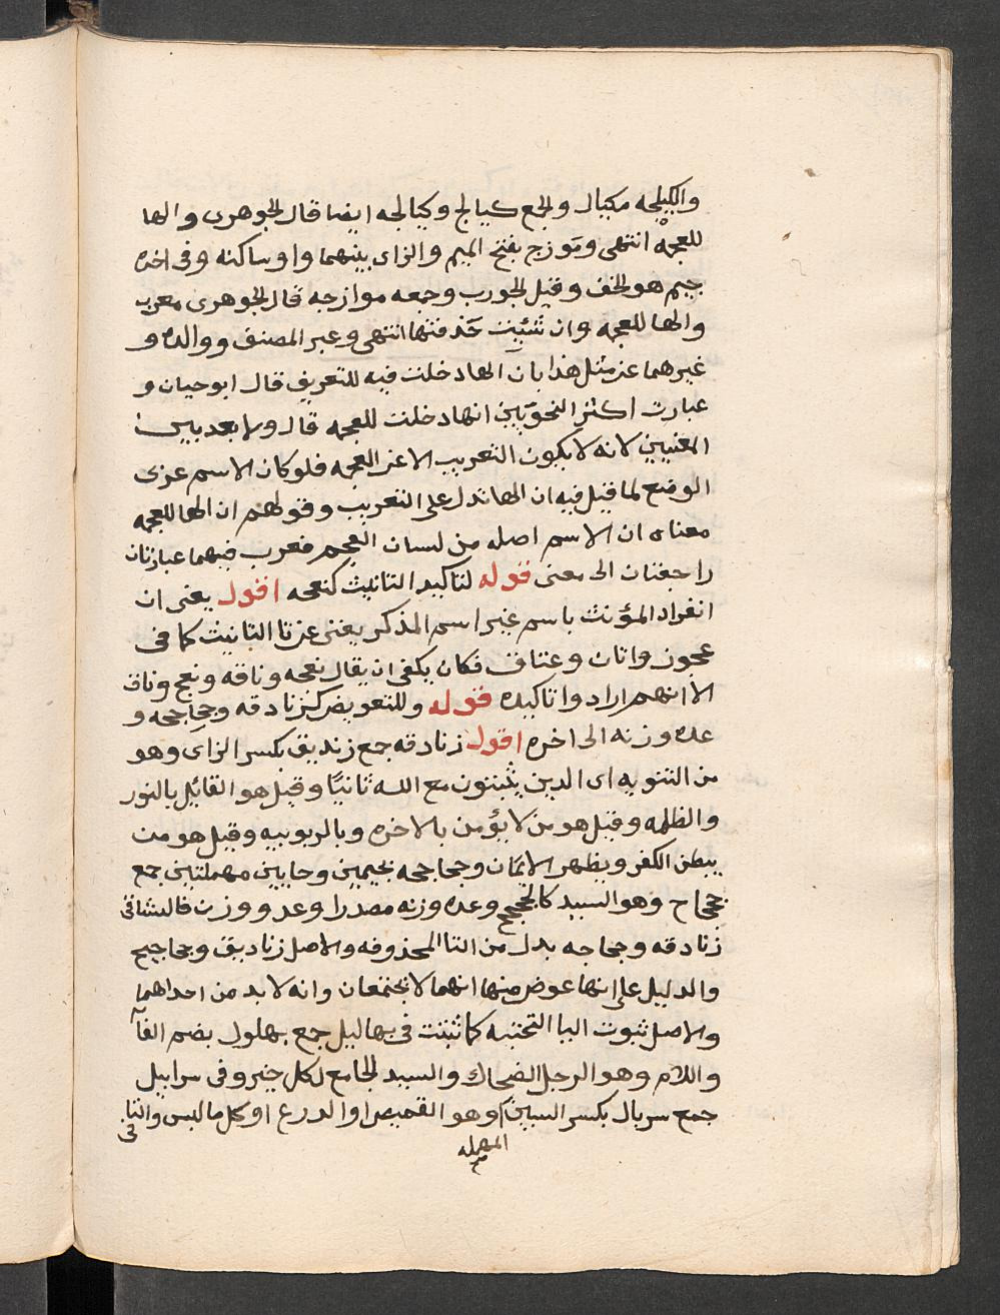 والكيلجه مكيال والجمع كيالج وكيالجه ايضا قال الجوهرى والها
للعجمه انتهى وموزج بفتح الميم والزاى بينهما واو ساكنه وفى اخره
جيم هو الخف وقيل الجورب وجمعه موازجه قال الجوهرى معرب
والها للعجمه وان شئيت حذفتها انتهى وعبر المصنف ووالده و
غيرهما عن مثل هذا بان الها دخلت فيه للتعريف قال ابو حيان و
عبارت اكثر النحويين انها دخلت للعجمه قال ولا بعد بين
المعنيين لانه لا يكون التعريب الا عن العجمه فلو كان الاسم عربى
الوضع لما قيل فيه ان الها تدل على التعريب وقولهم ان الها للعجمه
معناه ان الاسم اصله من لسان العجم فعرب فيهما عبارتان
راجعتان الى معنى قوله لتاكيد التانيث كنعجه اقول يعنى ان
انفراد المؤنث باسم غير اسم المذكر يغنى عن تا التانيث كما فى
عجوز واتان وعناق فكان يكفى ان يقال نعجه وناقه ونعج وناق
الا انهم ارادوا تاكيده قوله وللتعويض كزنادقه وجحاجحه و
عده وزنه الى اخره اقول زنادقه جمع زنديق بكسر الزاى وهو
من الثنويه اى الدين يثبتون مع الله ثانيًا وقيل هو القائل بالنور
والظلمه وقيل هو من لا يؤمن بالاخره وبالربوبيه وقيل هو من
يبطن الكفر ويظهر الايمان وجحاجحه بجيمين وحايين مهملتين جمع
جحجاح وهو السيد كالجحجح وعده وزنه مصدرا وعد ووزن فالتا فى
زنادقه وجحاجه بدل من التا المحذوفه والاصل زناديق وجحاجيح
والدليل على انها عوض منها انهما لا يجتمعان وانه لا بد من احداهما
والاصل ثبوت اليا التحتيه كما ثبتت فى بهاليل جمع بهلول بضم الفآ
واللام وهو الرجل الضحاك والسيد الجامع لكل خير وفى سرابيل
جمع سربال بكسر السين وهو القميص او الدرع او كل ما لبس والتا فى
المهمله